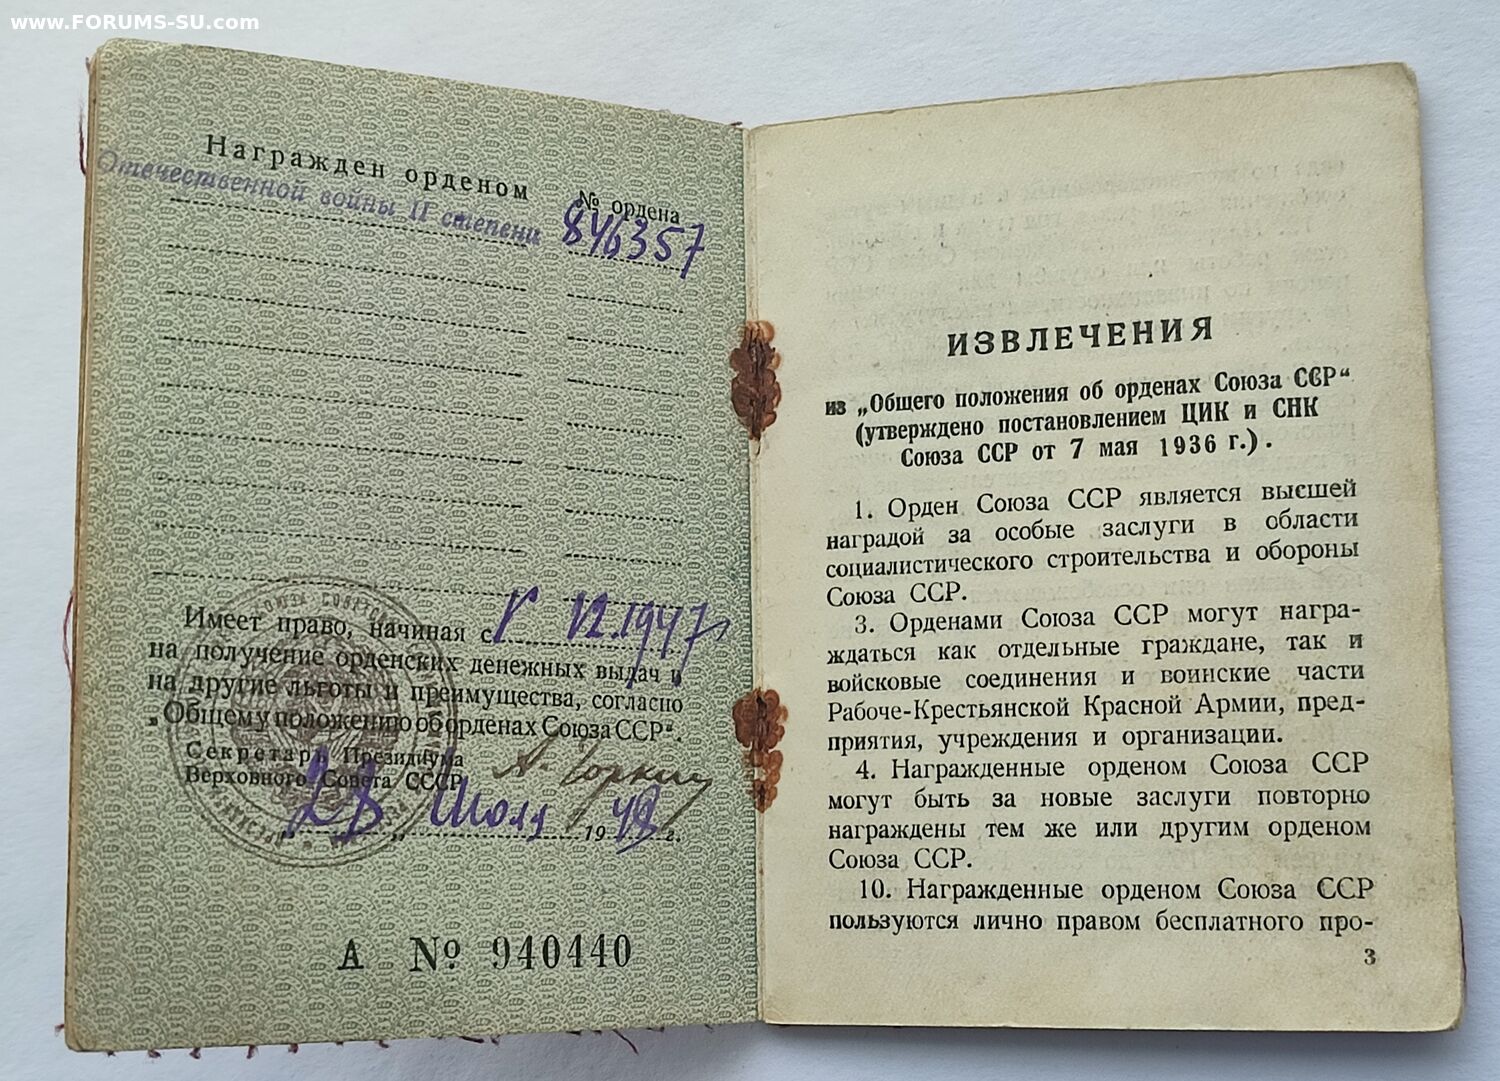 www.FORUMS-SU.com
Награжден орденом
№ ордена
Отечественной войны II степени
846357
Имеет право, начиная с 12.1947
на получение орденских денежных выдач и
на другие льготы и преимущества, согласно
„Общему положению об орденах Союза ССР“.
Секретарь Президиума
Верховного Совета СССР
А. Горкин
„28“ Июля 1948 г.
А № 940440
ИЗВЛЕЧЕНИЯ
из „Общего положения об орденах Союза ССР“
(утверждено постановлением ЦИК и СНК
Союза ССР от 7 мая 1936 г.).
1. Орден Союза ССР является высшей
наградой за особые заслуги в области
социалистического строительства и обороны
Союза ССР.
3. Орденами Союза ССР могут награ-
ждаться как отдельные граждане, так и
войсковые соединения и воинские части
Рабоче-Крестьянской Красной Армии, пред-
приятия, учреждения и организации.
4. Награжденные орденом Союза ССР
могут быть за новые заслуги повторно
награждены тем же или другим орденом
Союза ССР.
10. Награжденные орденом Союза ССР
пользуются лично правом бесплатного про-
3